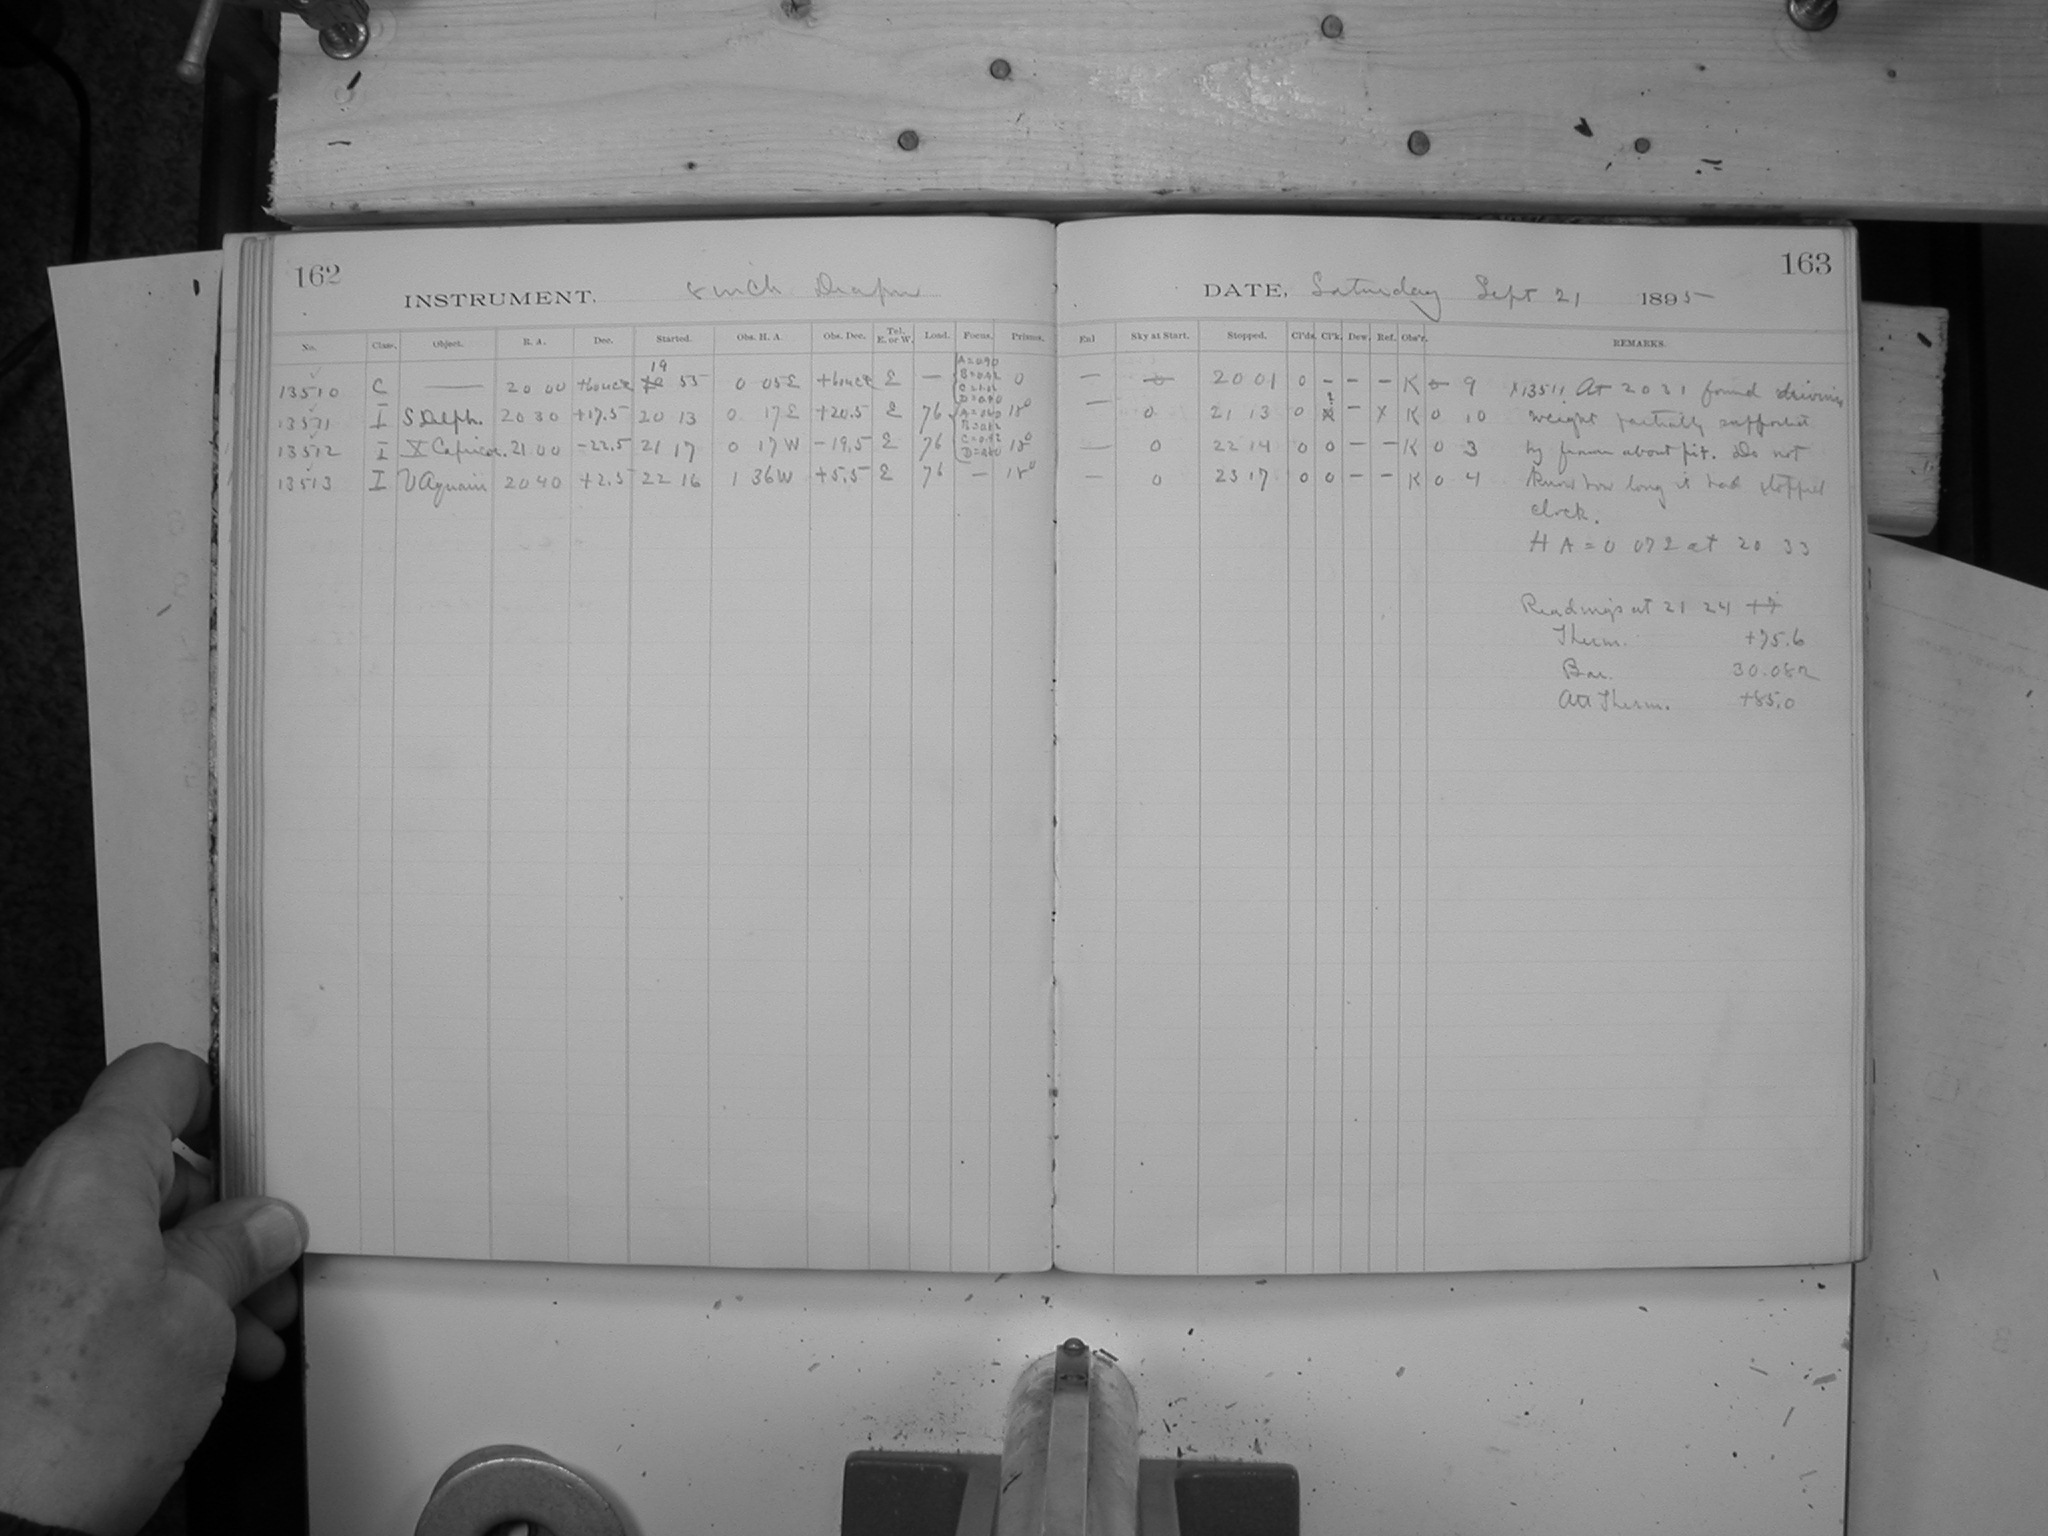 162
INSTRUMENT. 8 inch Draper
No. Class. Object. R. A. Dec. Started. Obs. H. A. Obs. Dec. Tel. E. or W. Load. Focus. Prisms.
13510 C — 20 00 19 55 0 05 E E — 0
13511 I S Delph. 20 30 +17.5 20 13 0 17 E +20.5 E 76 18°
13512 I X Capricor. 21 00 -22.5 21 17 0 17 W -19.5 E 76 18°
13513 I V Aquarii 20 40 +2.5 22 16 1 36 W +5.5 E 76 — 18°
163
DATE, Saturday Sept 21 1895
Exl Sky at Start. Stopped. Cl'ds. Cl'k. Dew. Ref. Obs'r. REMARKS.
— 0 20 01 0 - - - K 0 9
— 0 21 13 0 x - x K 0 10
— 0 22 14 0 0 - - K 0 3
— 0 23 17 0 0 - - K 0 4
x13511 At 20 31 found driving
weight partially supported
by frame about pit. Do not
know how long it had stopped
clock.
H A = 0 07 E at 20 33
Readings at 21 24
Therm. +75.6
Bar. 30.082
Att Therm. +85.0